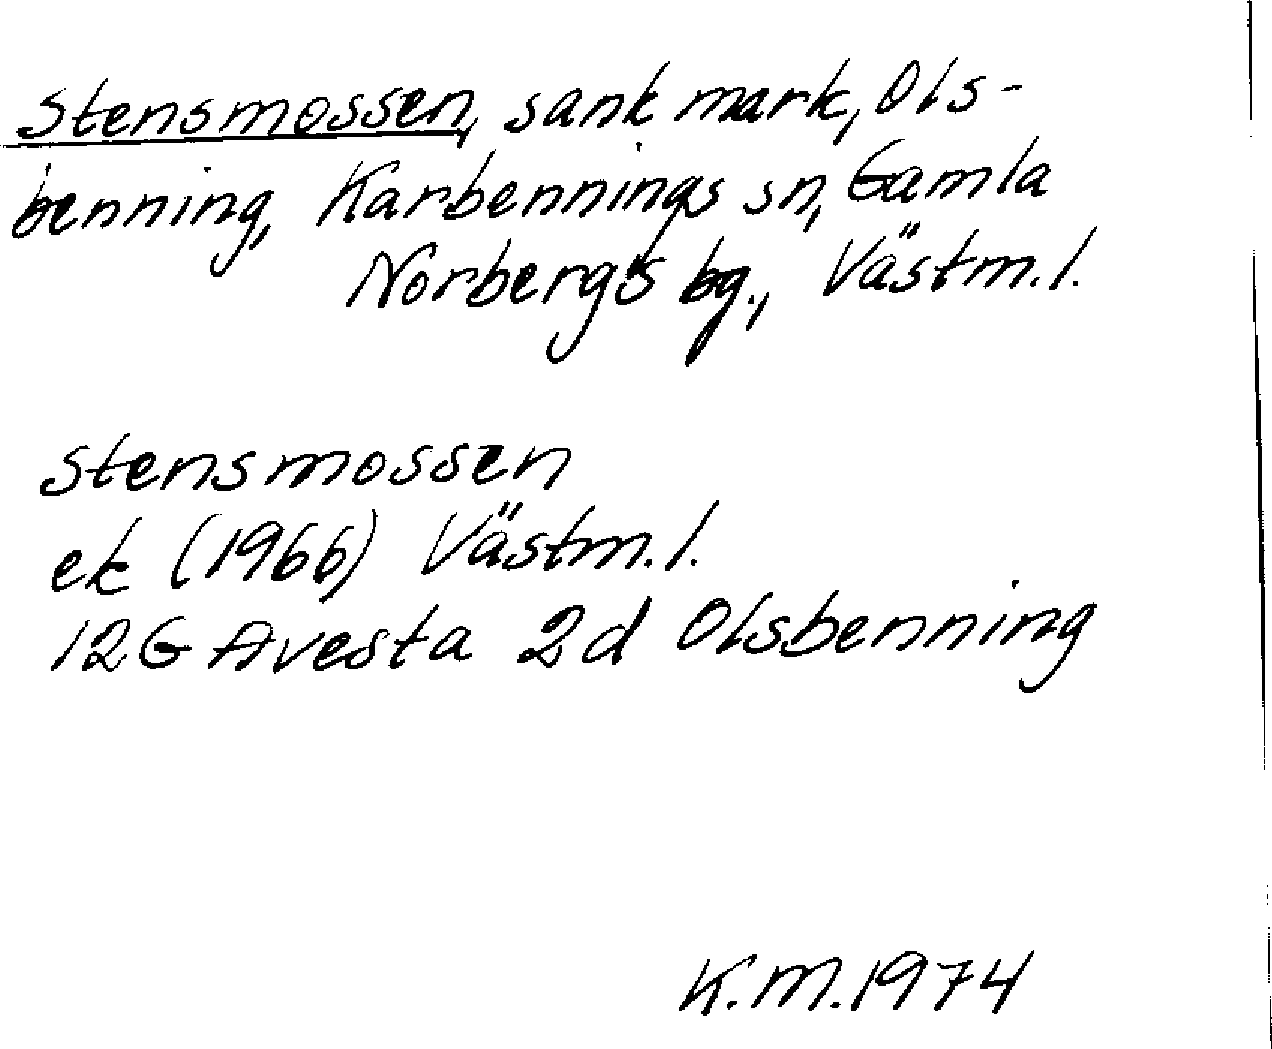 Stensmossen, sank mark, Ols-
benning, Karbennings sn, Gamla
Norbergs bg., Västm.l.
Stensmossen
ek (1966) Västm.l.
12G Avesta 2d Olsbenning
K.M.1974